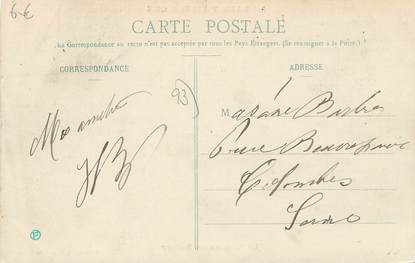 6€
CARTE POSTALE
La Correspondance au recto n'est pas acceptée par tous les Pays Etrangers. (Se renseigner à la Poste.)
CORRESPONDANCE
ADRESSE
93
Mes amitiés
Madame
rue
Colombes
Seine
F